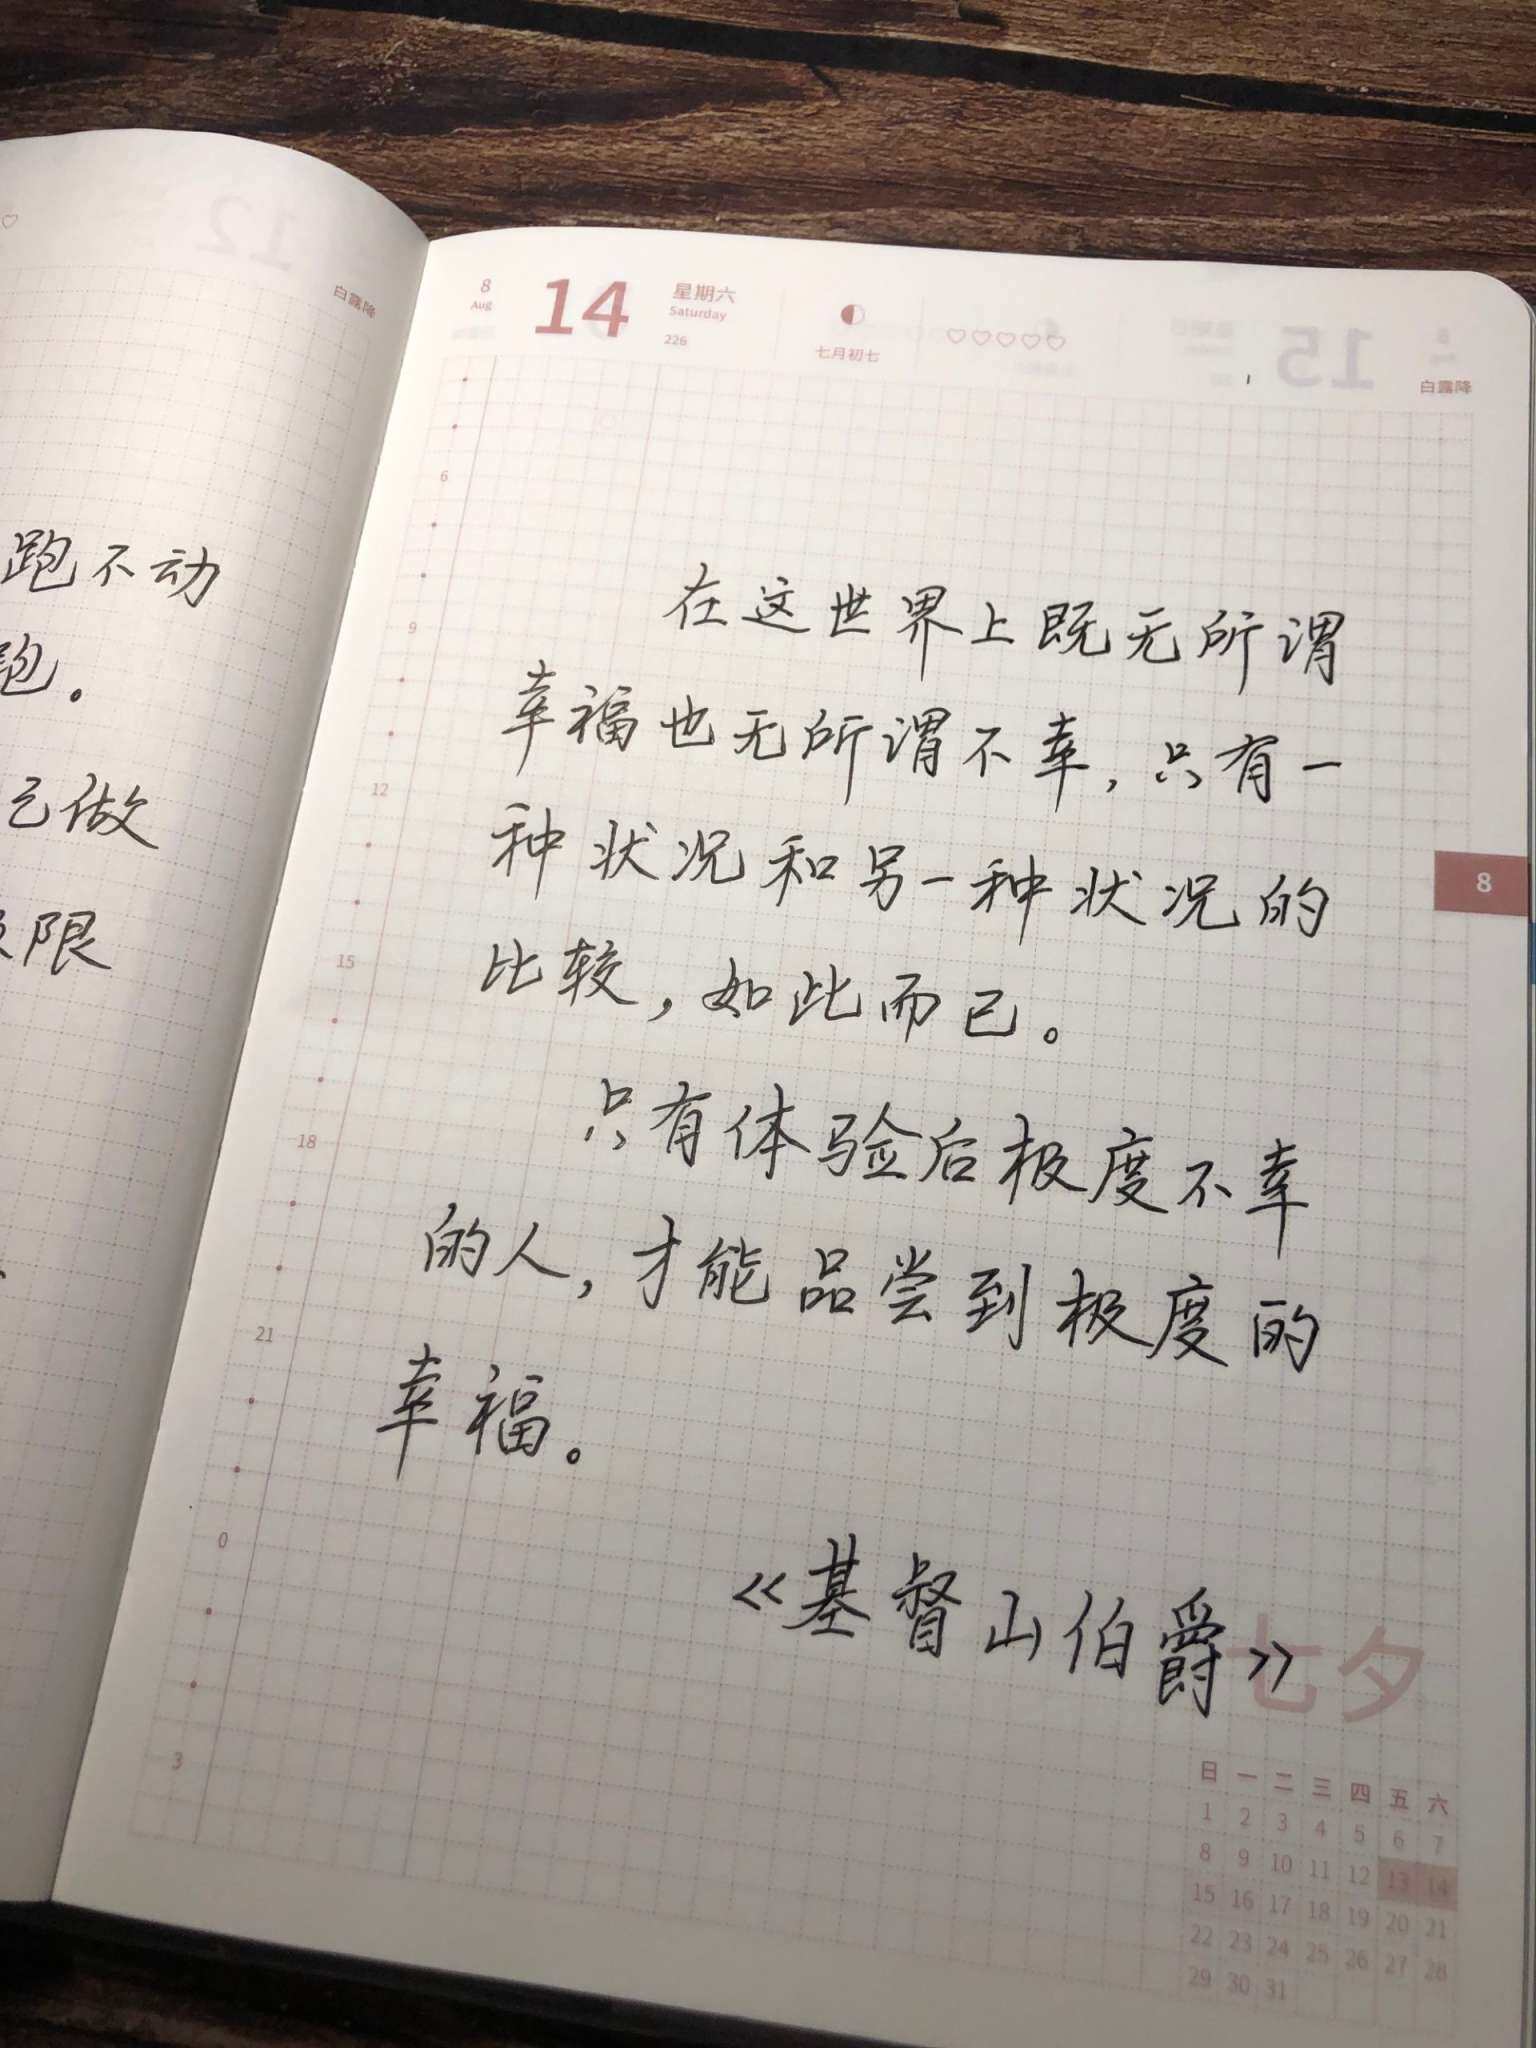 白露降
跑不动
跑。
己做
限
8
Aug
14
星期六
Saturday
226
七月初七
白露降
6
9
12
15
18
21
0
3
在这世界上既无所谓
幸福也无所谓不幸,只有一
种状况和另一种状况的
比较,如此而已。
只有体验后极度不幸
的人,才能品尝到极度的
幸福。
《基督山伯爵》
七夕
8
日 一 二 三 四 五 六
1 2 3 4 5 6 7
8 9 10 11 12 13 14
15 16 17 18 19 20 21
22 23 24 25 26 27 28
29 30 31